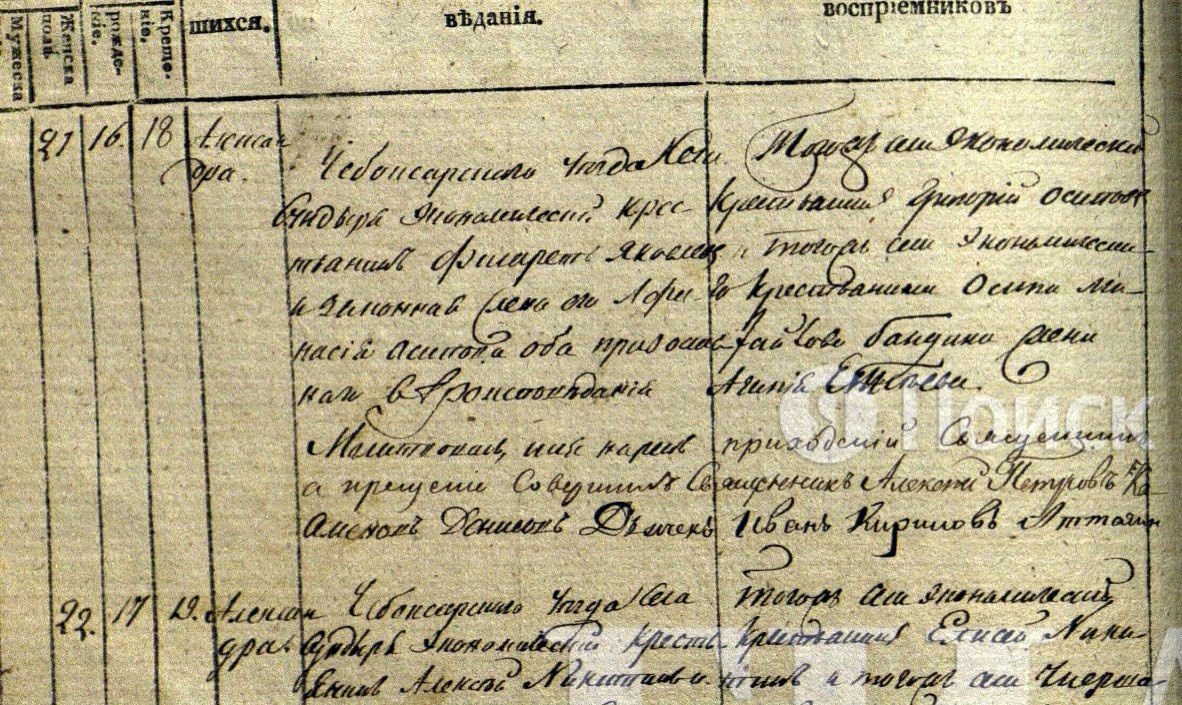 Мужеска
Женска
полъ.
рожде-
ніе.
Креще-
ніе.
шихся.
вѣданія.
воспріемниковъ
21 16. 18 Алексан
дра.
Чебоксарскаго уезда Села
Сундыря экономической крес-
тьянинъ Филаретъ Яковлевъ
и законная жена его Афа-
насія Осипова оба православ-
наго вѣроисповѣданія
Тогожъ села экономической
крестьянинъ Григорій Осиповъ
и тогожъ села экономическа-
го крестьянина Осипа Ми-
хайлова жена
Агапія
Молитвовалъ, имя нарекъ приходскій Священникъ
а крещеніе Совершилъ Священникъ Алексѣй Петровъ
Денисовъ Дьячекъ Иванъ Кириловъ
22. 17 19. Алексан
дра.
Чебоксарскаго уезда Села
Сундыря Экономической кресть-
янинъ Алексѣй Никитинъ и
Тогожъ села экономической
крестьянинъ Елисей Ники-
тинъ и тогожъ села
Поиск